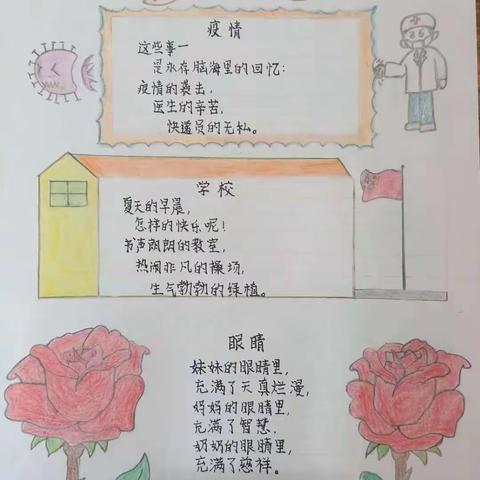 疫情
这些事一
是永存脑海里的回忆:
疫情的袭击,
医生的辛苦,
快递员的无私。
学校
夏天的早晨,
怎样的快乐呢!
书声朗朗的教室,
热闹非凡的操场,
生气勃勃的绿植。
眼睛
妹妹的眼睛里,
充满了天真烂漫,
妈妈的眼睛里,
充满了智慧,
奶奶的眼睛里,
充满了慈祥。